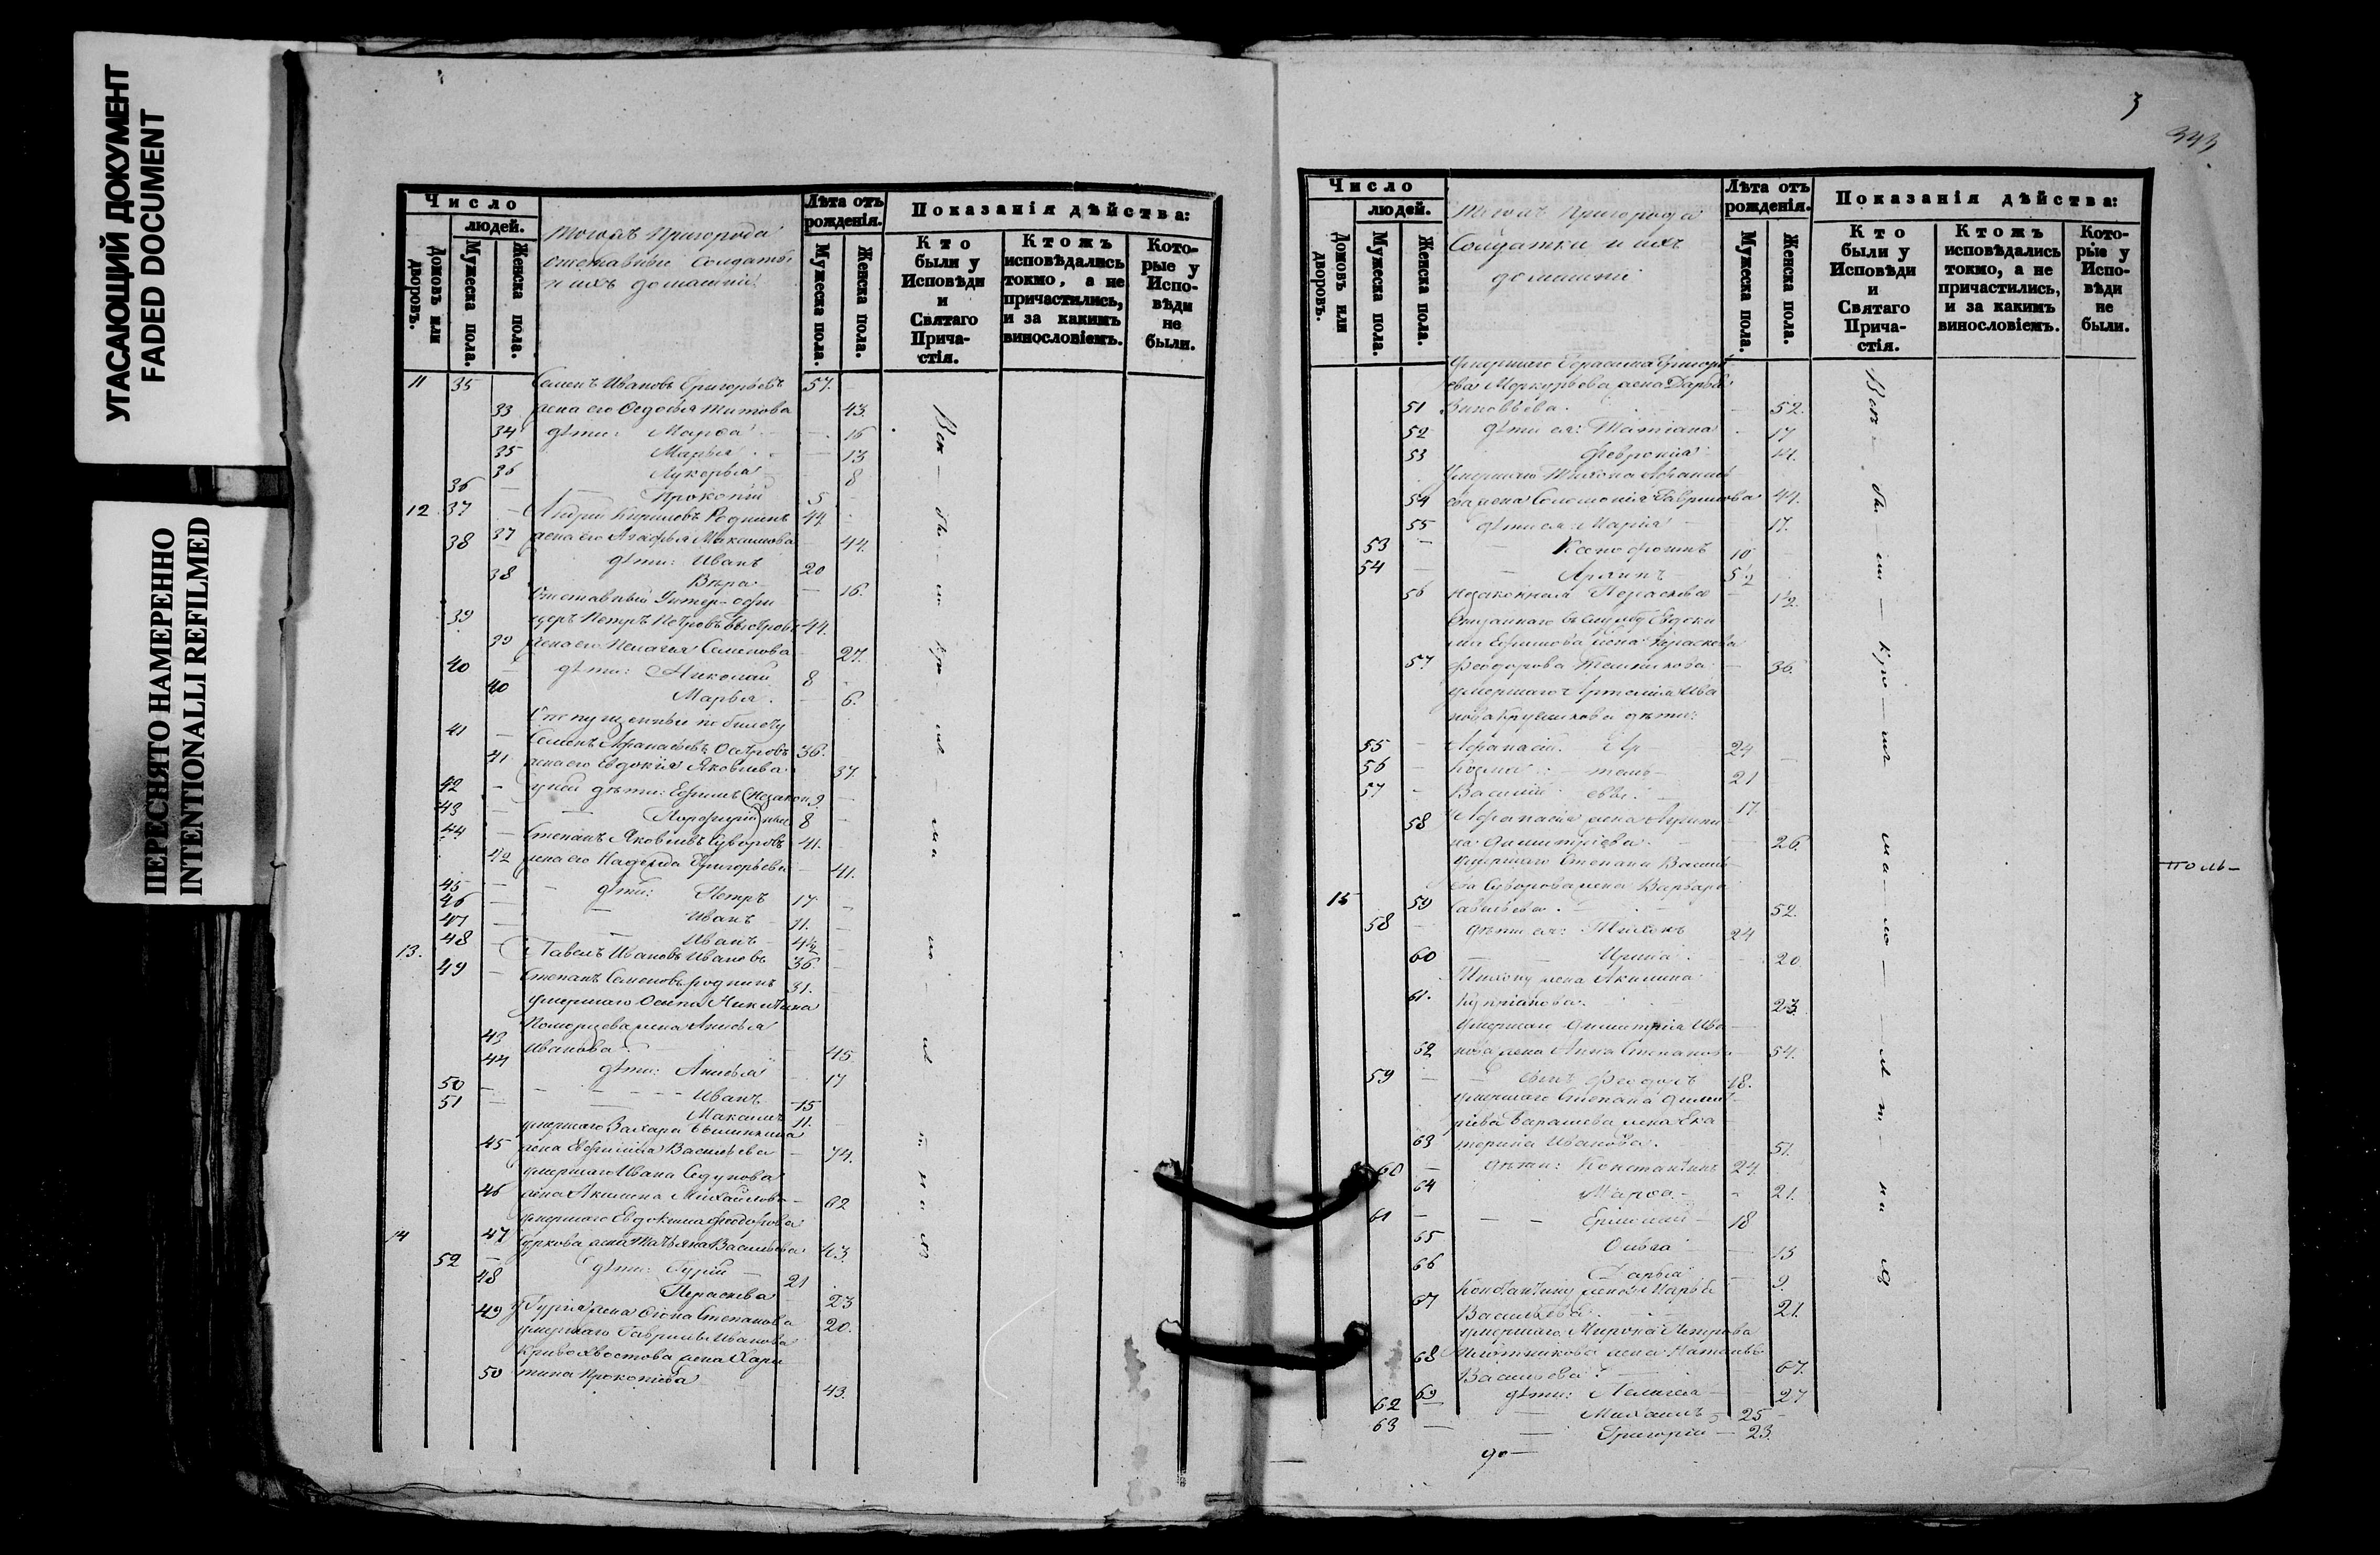 УГАСАЮЩИЙ ДОКУМЕНТ
FADED DOCUMENT
ПЕРЕСНЯТО НАМЕРЕННО
INTENTIONALLI REFILMED
Число
людей.
домовъ или дворовъ.
Мужеска пола.
Женска пола.
тогожъ Пригорода
отставные Солдаты
и ихъ домашніи
Лѣта отъ рожденія.
Мужеска пола.
Женска пола.
Показанія дѣйства:
Кто были у Исповѣди и Святаго Прича-стія.
Ктожъ исповѣдались токмо, а не причастились, и за какимъ винословіемъ.
Кото-рые у Испо-вѣди не были.
11 35 Семенъ Ивановъ Григорьевъ 57.
33 жена его Ѳедосья Титова 43.
34 дѣти: Марѳа 16
35 Марья 13
36 Лукерья 8
36 Прокопій 5
12 37 Андрей Кириловъ Роднинъ 44.
37 жена его Агафья Максимова 44.
38 дѣти: Иванъ 20
38 Вѣра 16.
Отставный Унтер-офи
39 церъ Петръ Петровъ 44.
39 жена его Пелагея Семенова 27.
40 дѣти: Николай 8
40 Марья 6.
Отпущенные по билету
41 Семенъ Аѳанасьевъ 36.
41 жена его Евдокія Яковлева 37.
42 у ней дѣти: Ефимъ (незакон 9.
43 Порфирій) ные 8
44 Степанъ Яковлевъ Суворовъ 41.
42 жена его Надежда Григорьева 41.
45 дѣти: Петръ 17
46 Иванъ 11.
47 Иванъ 4½
13. 48 Павелъ Ивановъ Ивановъ 36.
49 Степанъ Семеновъ Роднинъ 31.
умершаго Осипа Никитина
жена Анисья
43 Иванова 45
44 дѣти: Анисья 17
50 Иванъ 15
51 Максимъ 11.
умершаго Захара
45 жена Евфимія Васильева 74.
умершаго Ивана Седунова
46 жена Акилина Михайлова 62
умершаго Евдокима Ѳедорова
14 47 жена Татьяна Васильева 43
52 дѣти: Гурій 21
48 Параскева 23
49 у Гурія жена Ѳекла Степанова 20.
умершаго Гаврила Иванова
Кривохвостова жена Хари
50 тина Прокопіева 43.
3
343
Число
людей.
домовъ или дворовъ.
Мужеска пола.
Женска пола.
Тогожъ Пригорода
Солдатки и ихъ
домашніи
Лѣта отъ рожденія.
Мужеска пола.
Женска пола.
Показанія дѣйства:
Кто были у Исповѣди и Святаго Прича-стія.
Ктожъ исповѣдались токмо, а не причастились, и за какимъ винословіемъ.
Кото-рые у Испо-вѣди не были.
Умершаго Герасима Григорь
ева Меркурьева жена Дарья
51 Зиновьева 52.
52 дѣти ея: Татіана 17
53 Февронія 14.
Умершаго Тихона Аѳанась
54 ева жена Соломонія Гаврилова 44.
55 дѣти ея: Марія 17.
53 Ксенофонтъ 10
54 Архипъ 5½
56 незаконная Параскева 1½.
Отданнаго въ службу Евдоки
ма Ефимова жена Параскева
57 Ѳеодорова 36.
умершаго Артемія Ива
нова Кружилкова дѣти:
55 Аѳанасій Ар 24
56 Козма темь 21
57 Василій евы 17.
58 У Аѳанасія жена Агрипи
на Димитріева 26.
умершаго Степана Василь
ева Суворова жена Варвара
15 59 Савельева 52.
58 дѣти ея: Тихонъ 24
60 Ирина 20
Тихону жена Акилина
61. Купріанова 23.
Умершаго Димитрія Ива
62 нова жена Анна Степанова 54.
59 сынъ Ѳеодоръ 18.
умершаго Степана Димит
ріева Барашева жена Ека
63 терина Иванова 51.
60 дѣти: Константинъ 24.
64 Марѳа 21.
61 Ермолай 18
65 Ольга 15
66 Дарья 9.
Константину жена Марья
67 Васильева 21.
умершаго Мирона Петрова
68 Плотникова жена Наталья
Васильева 67.
69 дѣти: Пелагея 27
62 Михаилъ 25
63 Григорій 23.
толь-